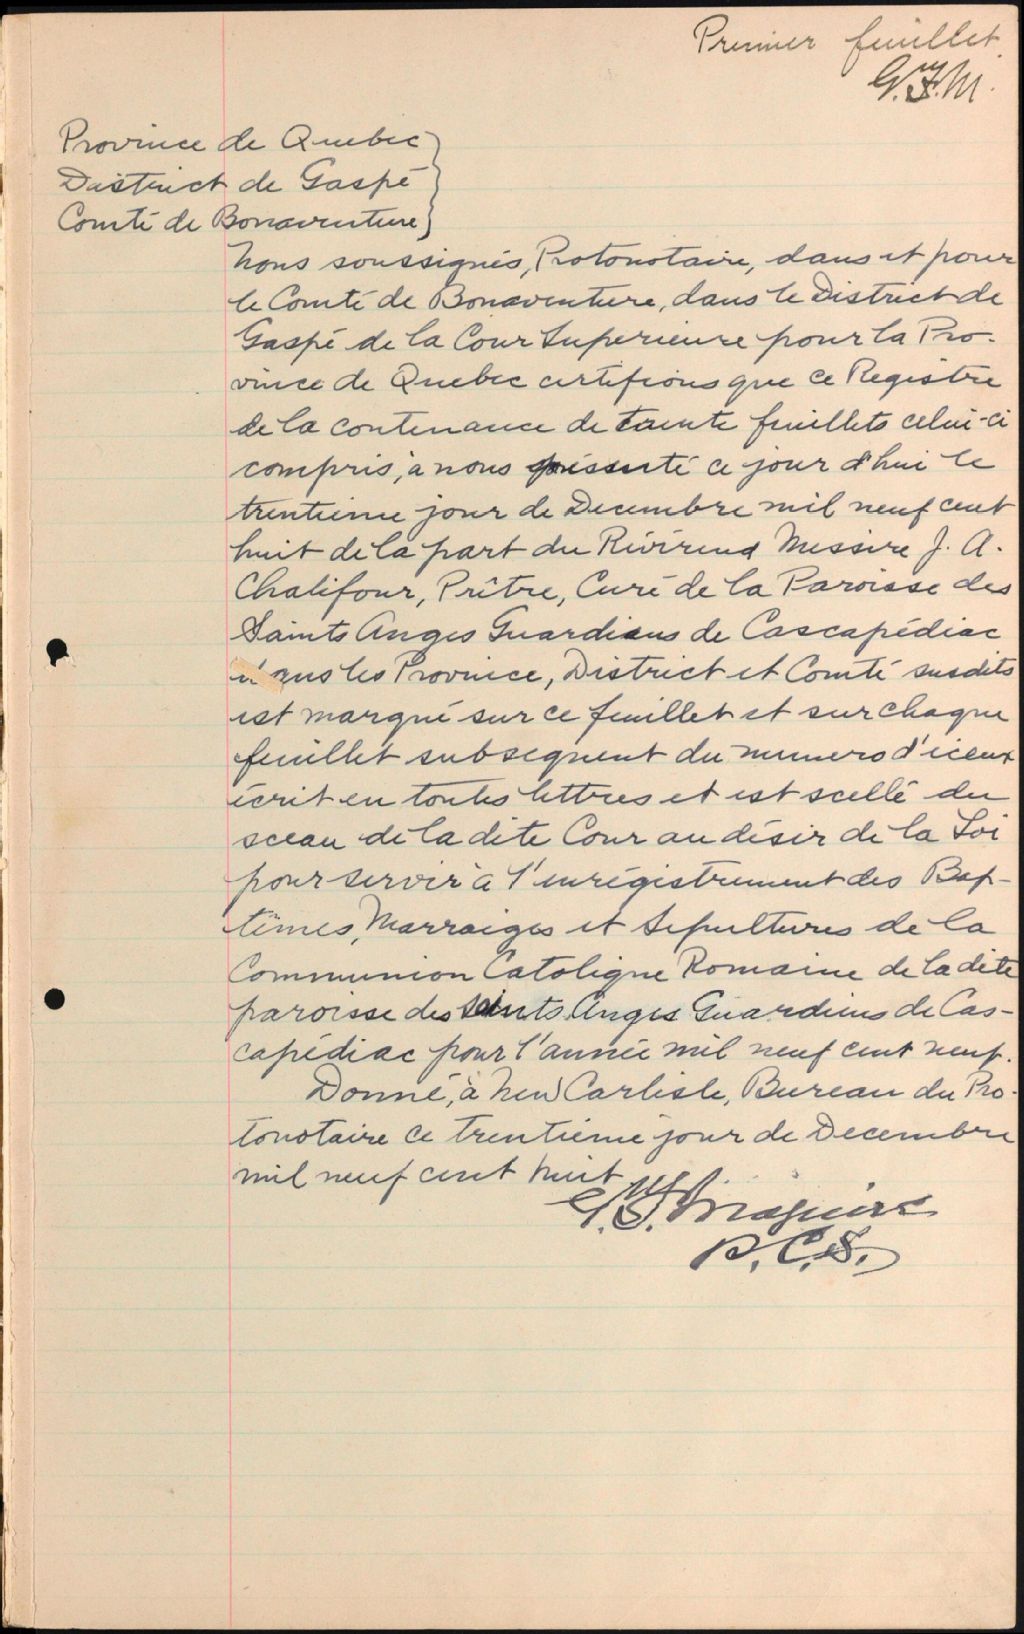 Premier feuillet
G.F.M.
Province de Quebec
District de Gaspé
Comté de Bonaventure
Nous soussignés, Protonotaire, dans et pour
le Comté de Bonaventure, dans le District de
Gaspé de la Cour Superieure pour la Pro-
vince de Quebec certifions que ce Registre
de la contenance de trente feuillets celui-ci
compris, a nous présenté ce jour d'hui le
trentieme jour de Decembre mil neuf cent
huit de la part du Révérend Messire J. A.
Chalifour, Prêtre, Curé de la Paroisse des
Saints Anges Guardiens de Cascapédiac
dans les Province, District et Comté susdits
est marqué sur ce feuillet et sur chaque
feuillet subsequent du numero d'iceux
écrit en toutes lettres et est scellé du
sceau de la dite Cour au désir de la Loi
pour servir à l'enrégistrement des Bap-
têmes, Marraiges et Sepultures de la
Communion Catoligue Romaine de la dite
paroisse des Saints Anges Guardiens de Cas-
capédiac pour l'année mil neuf cent neuf.
Donné, à New Carlisle, Bureau du Pro-
tonotaire ce trentième jour de Decembre
mil neuf cent huit
G. F. Maguire
P. C. S.